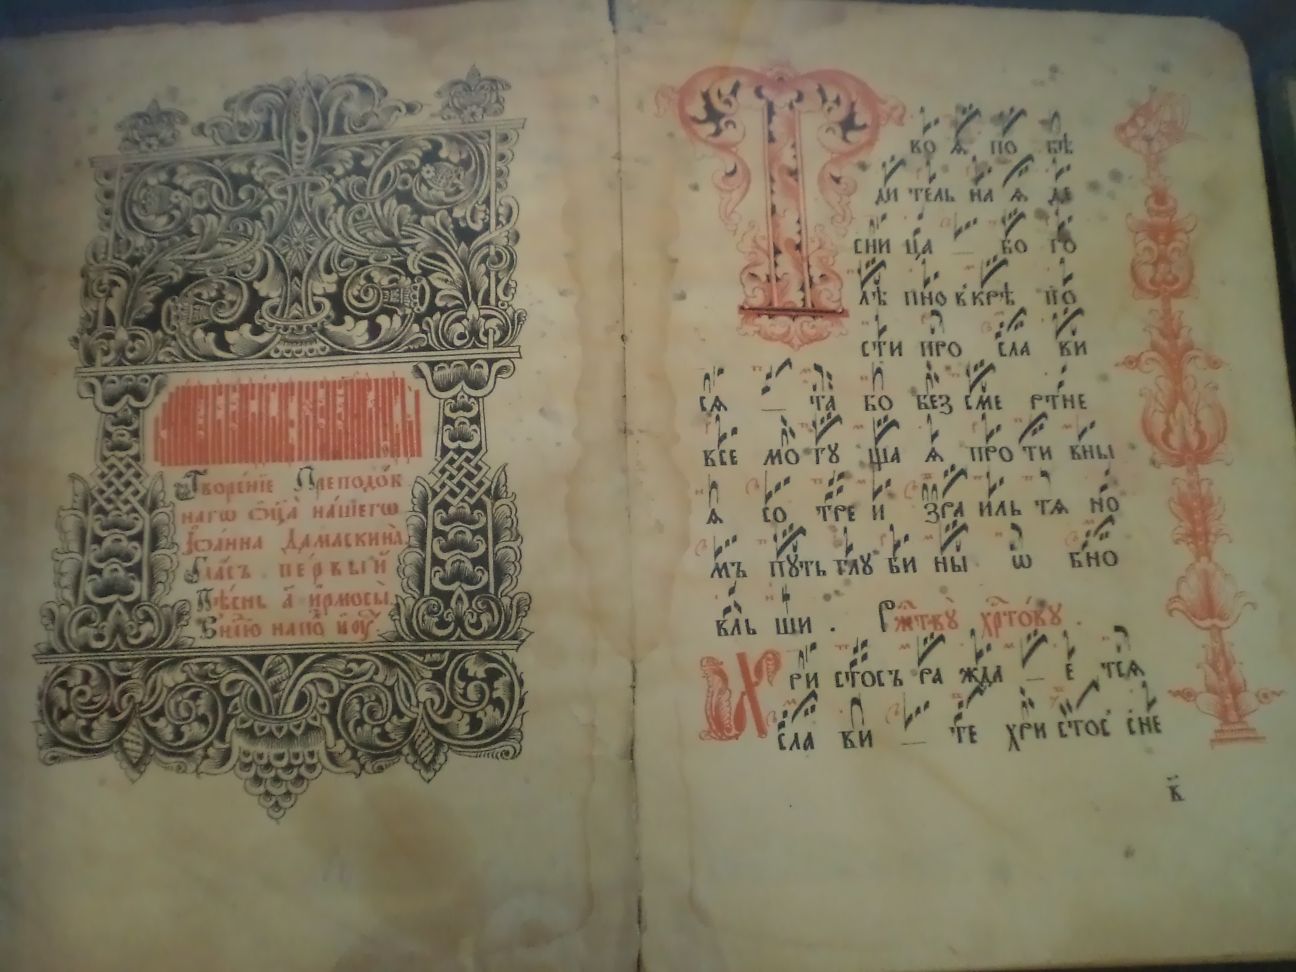 Творенїе Преподоб
нагѡ ѻц҃а на́шегѡ
Іѡанна Дамаскина̀,
Гласъ пе́рвый
Пѣснь а҃ ирмосы̀.
во ѧ по бѣ
ди тель на ѧ де
сни ца _ бо го
лѣ пно в крѣ по
сти про сла ви
сѧ _ та бо без сме ртне
все мо гу ща ѧ про ти вны
ѧ со тре и зра иль тѧ но
мъ путь глу би ны ѡ бно
вль ши .
Ржⷭ҇тву̀ хрⷭ҇то́ву .
Х ри стосъ ра жда _ е тсѧ
сла ви _ те хри стос с не
в҃